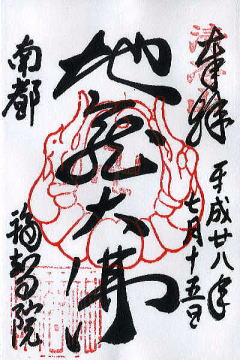 奉拝
平成廿八年
七月十五日
地蔵大佛
南都
福智院